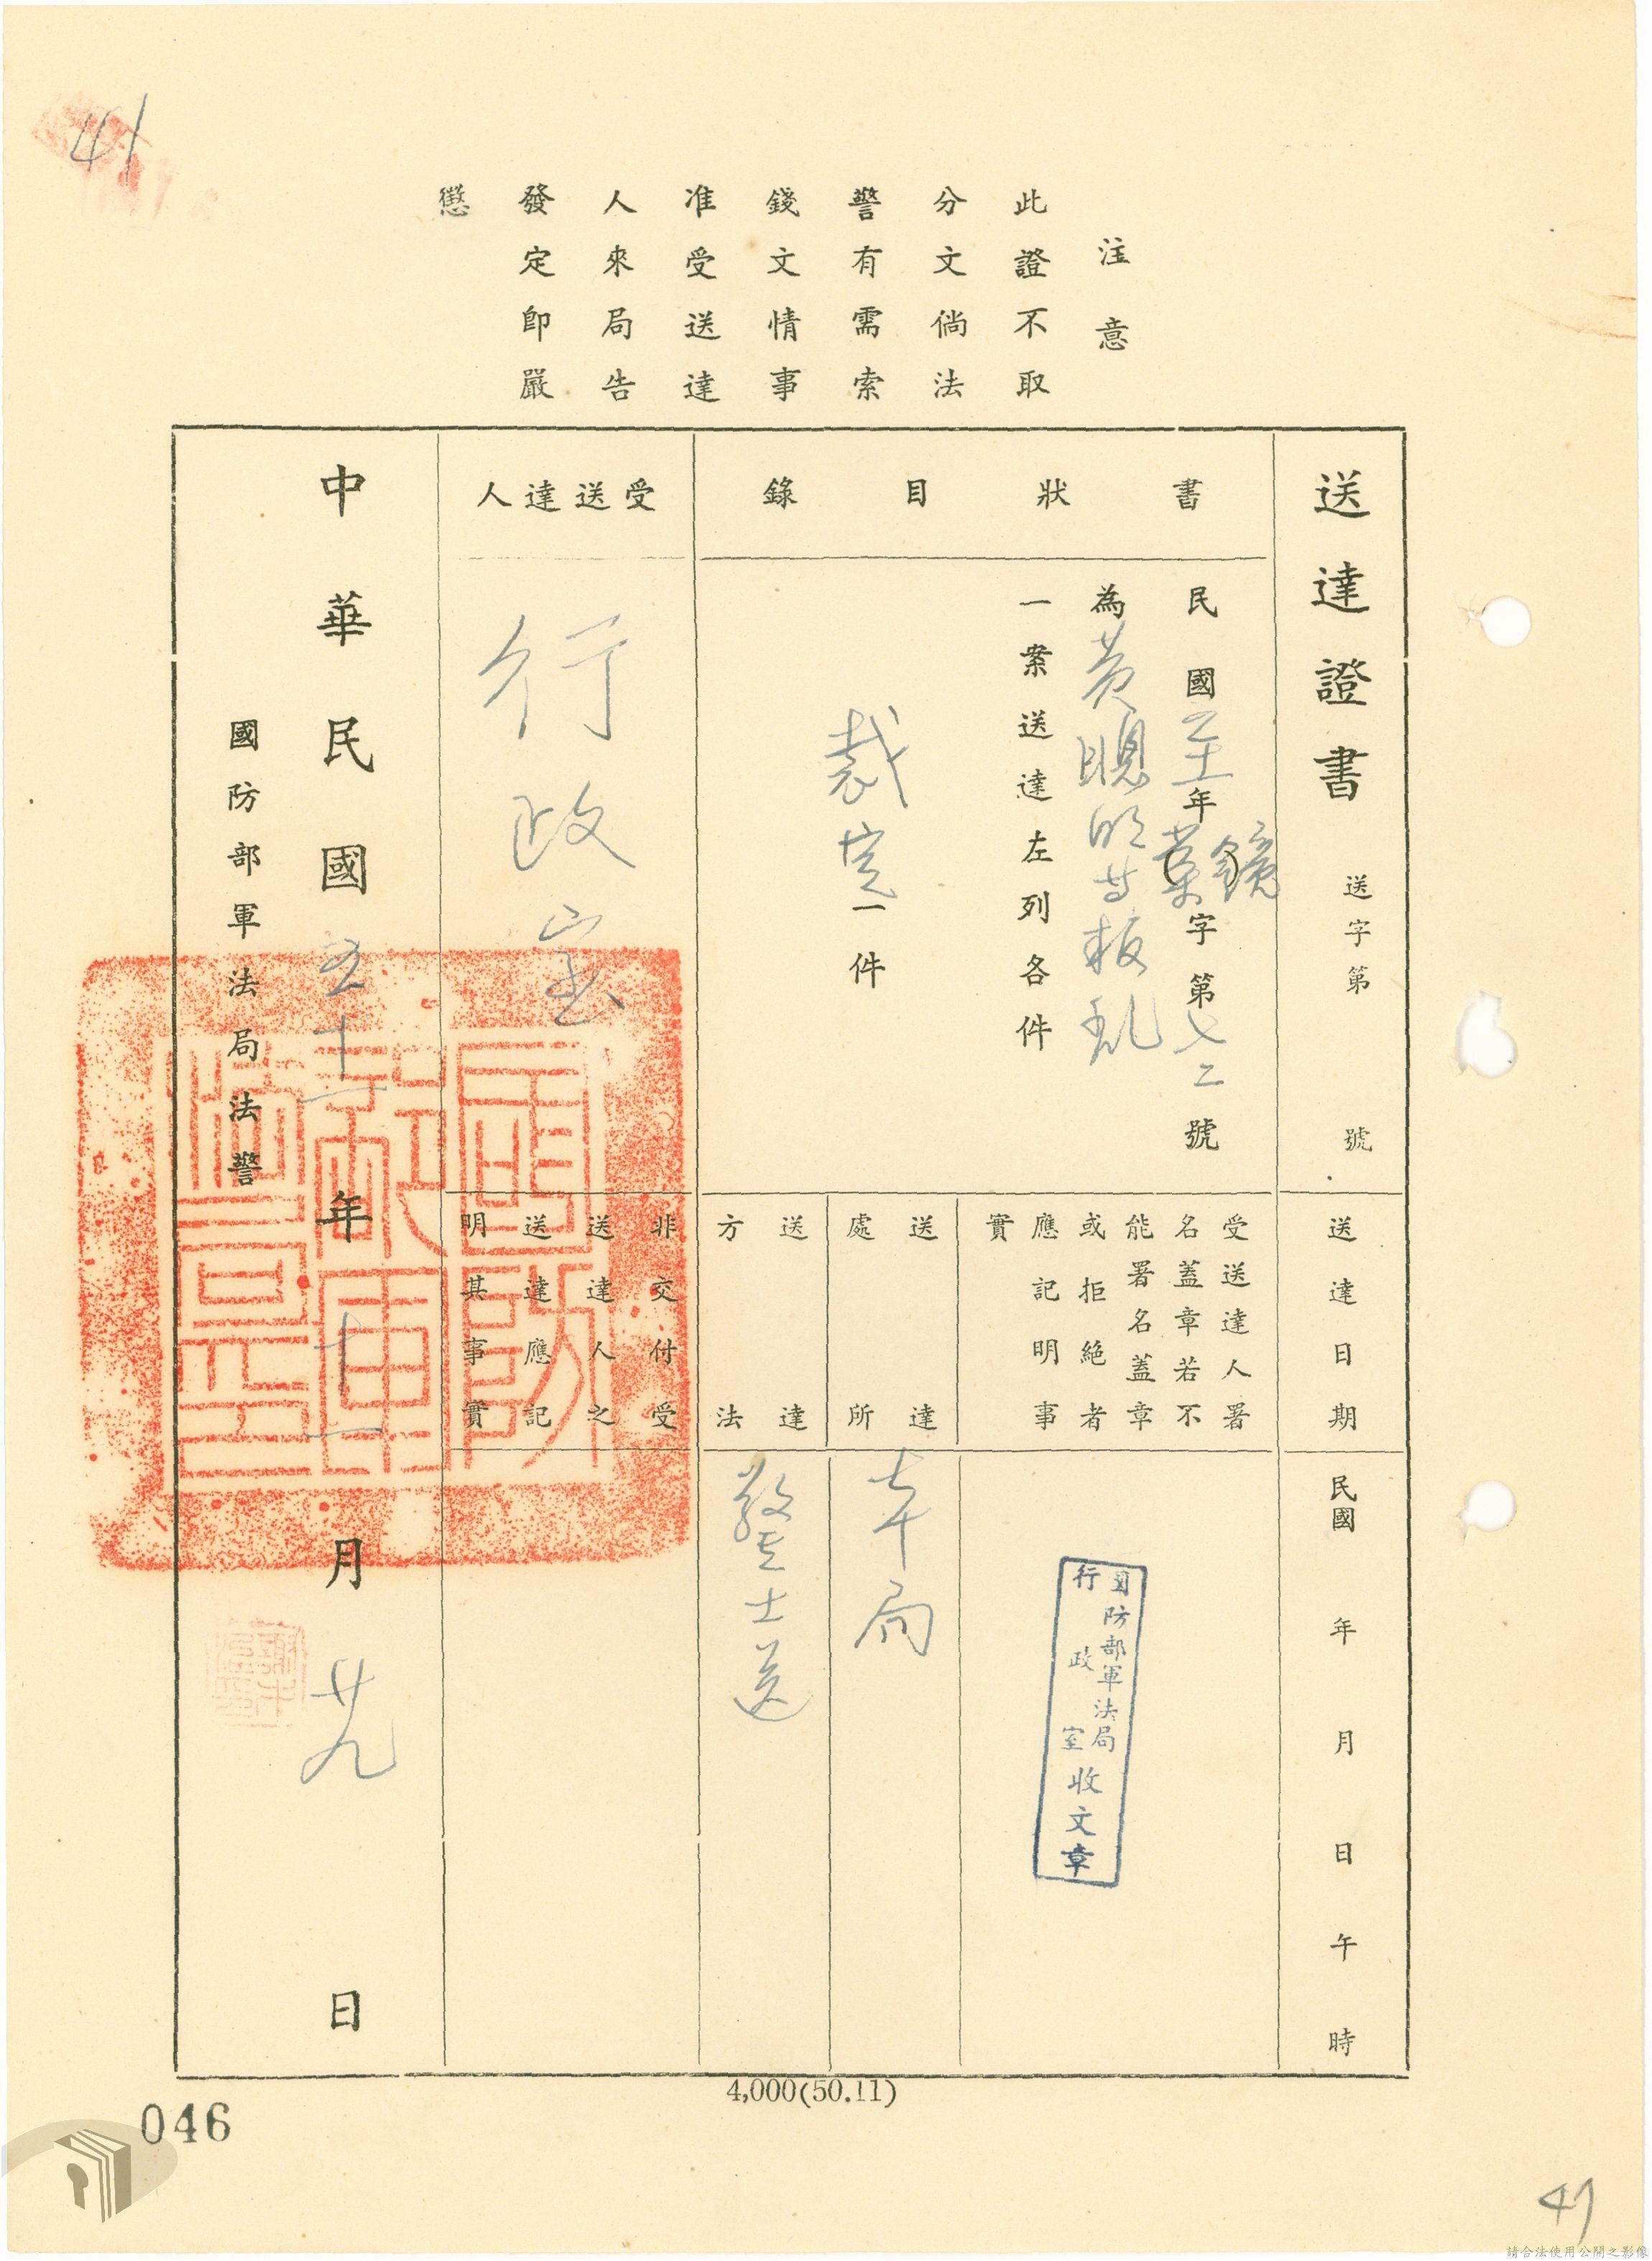 41
注意
此證不取
分文倘法
警有需索
錢文情事
准受送達
人來局告
發定即嚴
懲
送達證書 送字第 號
書狀目錄
民國五十一年鏡蒞字第七二號
為黃聰明等叛亂
一案送達左列各件
裁定一件
受送達人
行政室
送達日期
民國 年 月 日 午 時
受送達人署
名蓋章若不
能署名蓋章
或拒絕者
應記明事
實
國防部軍法局
行政室
收文章
送達
處所
本局
送達
方法
警士送
非交付受
送達人之
送達應記
明其事實
中華民國五十一年十一月廿九日
國防部軍法局法警
4,000(50.11)
046
47
請合法使用公開之影像